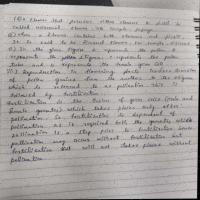 (i) A flower that possesses either stamens or pistil is
called unisexual flower. Ex:
(ii) when a flower contains both stamens and pistil
it is said to be bisexual flower. Ex:
(iii) In the given figure A represents the pollen
represents the stigma, C represents the pollen
tube and D represents the female
(iv) Reproduction in flowering plants
of pollen grains from the anther to the stigma
which is referred to as pollination this is
followed by fertilisation.
Fertilization is the fusion of germ cells (male and
female gametes) which takes place only after
pollination. So fertilisation is dependent of
pollination as is required both the gametes while
pollination is a step prior to fertilisation hence
pollination may occur without fertilisation but
fertilisation will not takes place without
pollination